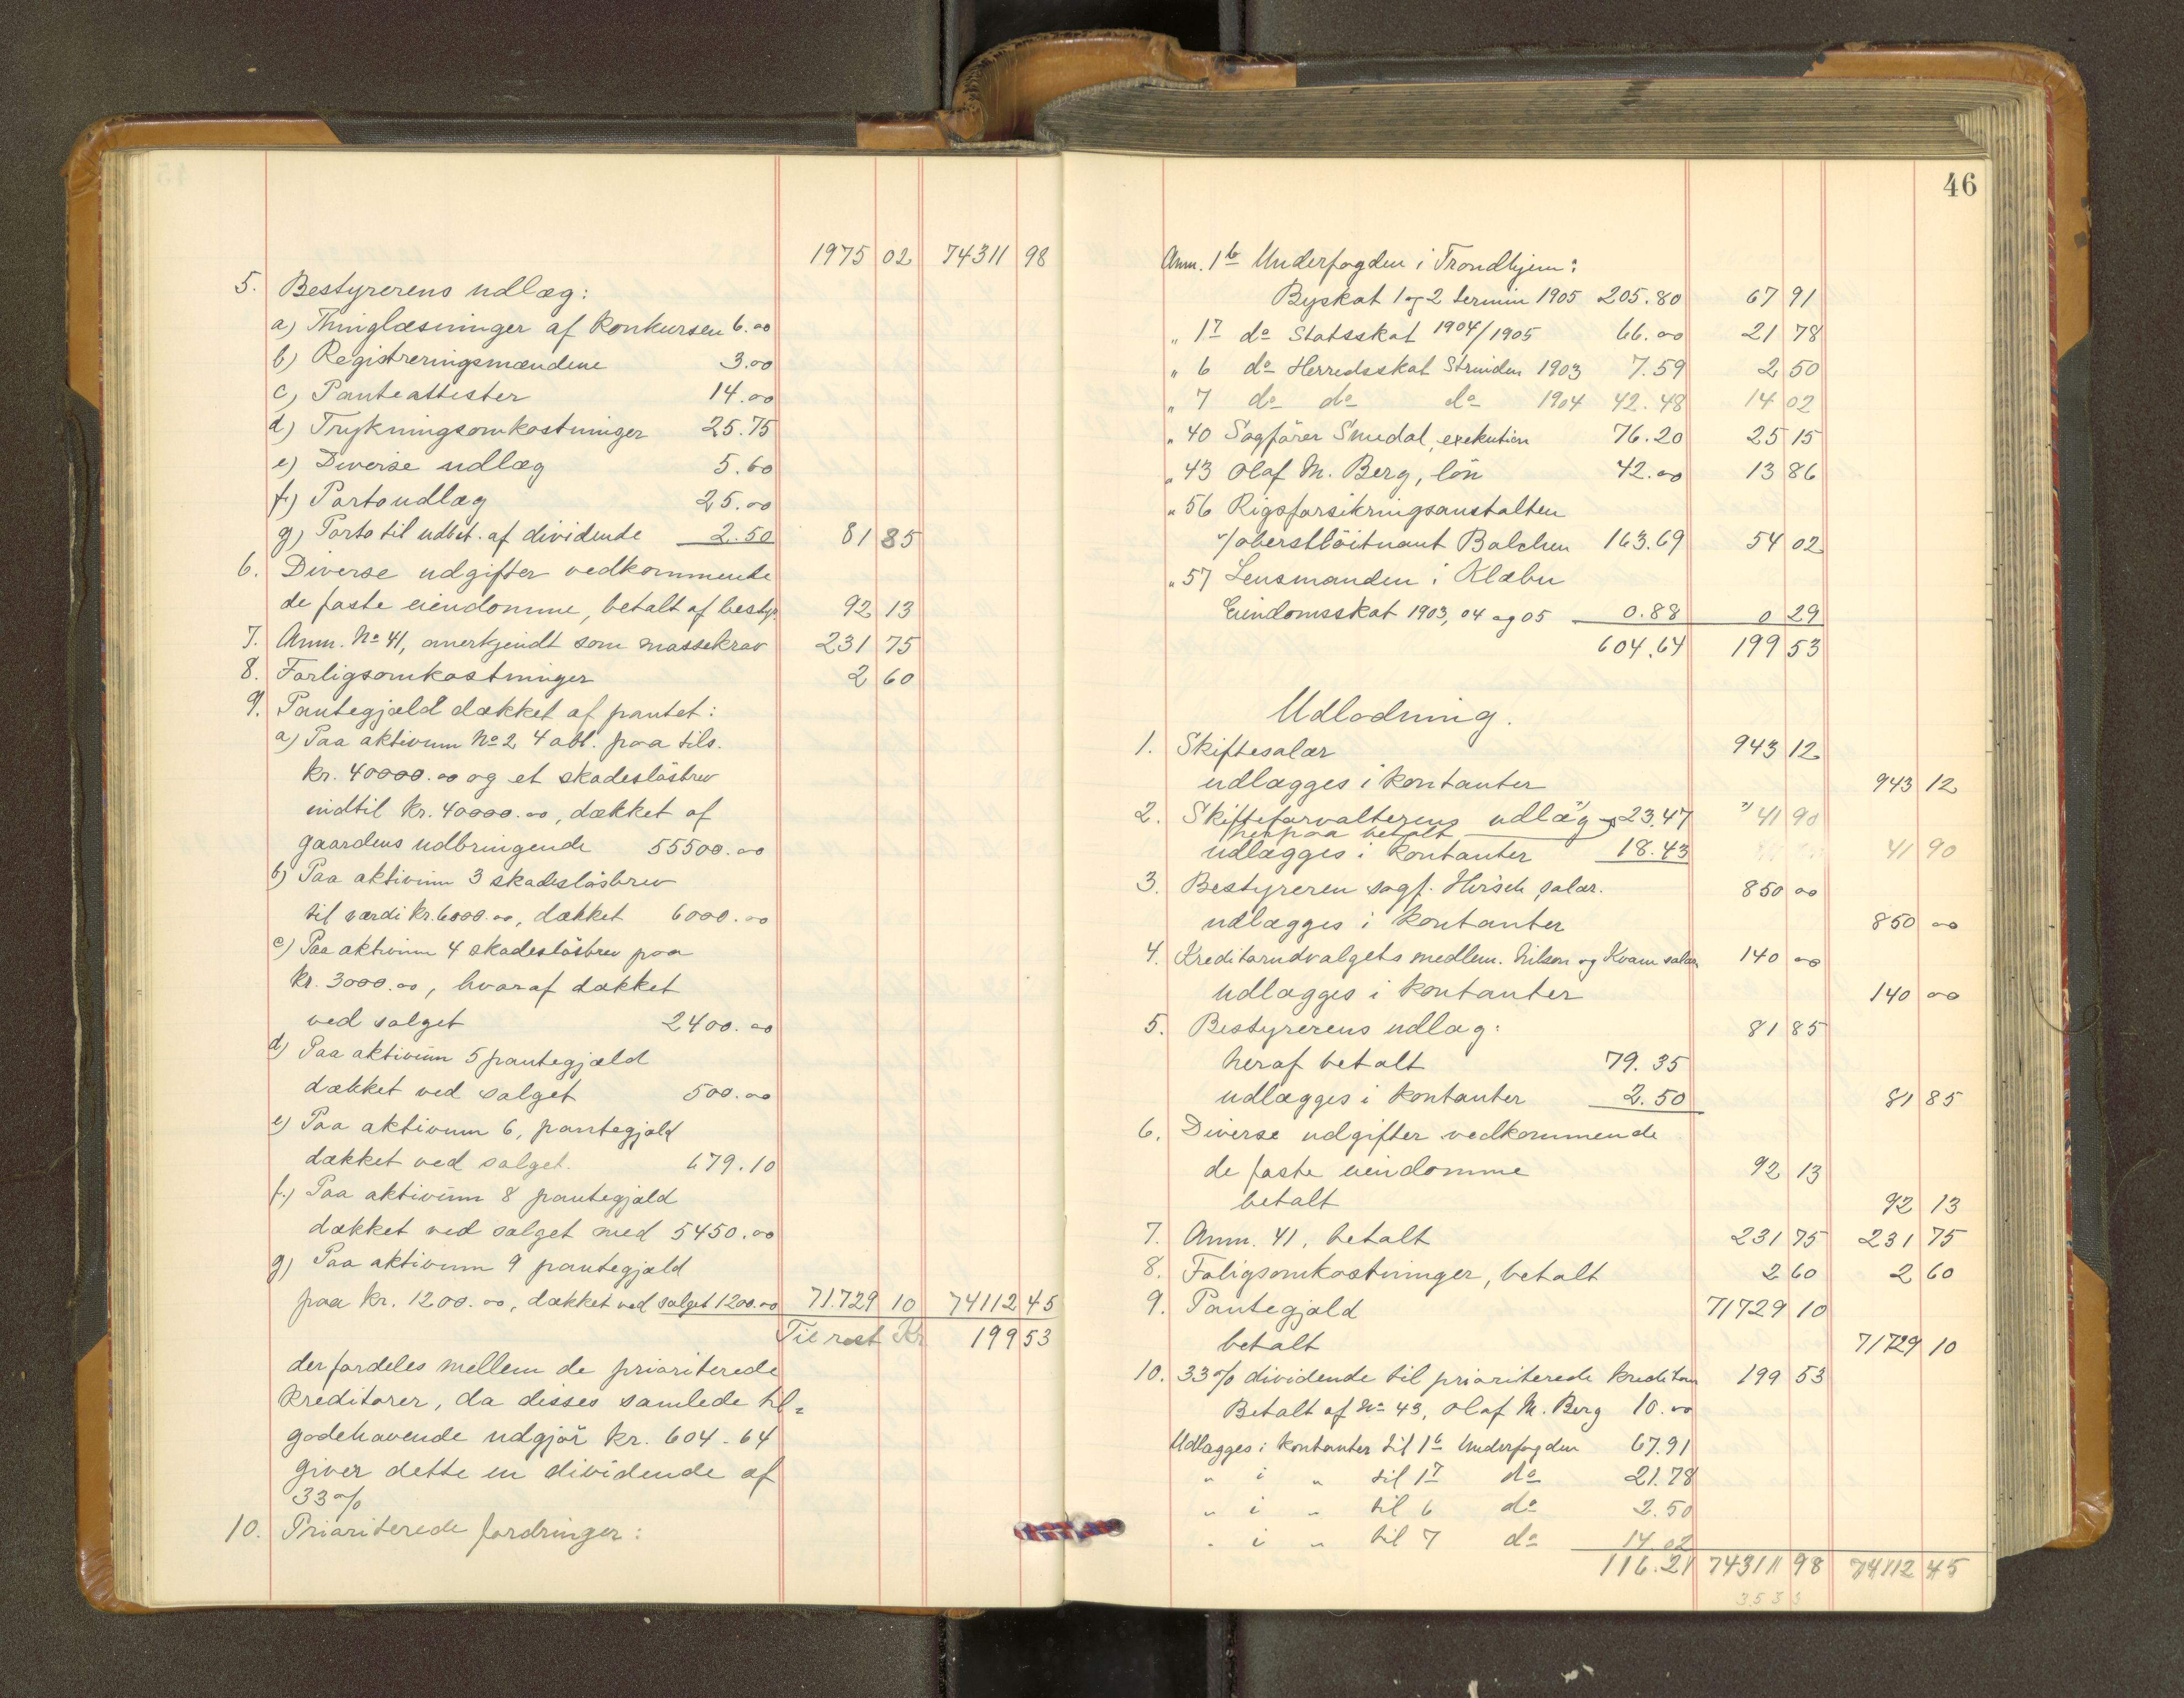 1975 02 74311 98
5. Bestyrerens udlæg:
a) Thinglæsninger af konkursen 6.00
b) Registreringsmændene 3.00
c) Panteattester 14.00
d) Trykningsomkostninger 25.75
e) Diverse udlæg 5.60
f) Portoudlæg 25.00
g) Porto til udbet. af dividende 2.50 81 85
6. Diverse udgifter vedkommende
de faste eiendomme, betalt af bestyr. 92 13
7. Anm. No 41, anerkjendt som massekrav 231 75
8. Forligsomkostninger 2 60
9. Pantegjæld dækket af pantet:
a) Paa aktivum No 2, 4 obl. paa tils.
kr. 40000.00 og et skadesløsbrev
indtil kr. 40000.00, dækket af
gaardens udbringende 55500.00
b) Paa aktivum 3 skadesløsbrev
til værdi kr. 6000.00, dækket 6000.00
c) Paa aktivum 4 skadesløsbrev paa
kr. 3000.00, hvoraf dækket
ved salget 2400.00
d) Paa aktivum 5 pantegjæld
dækket ved salget 500.00
e) Paa aktivum 6, pantegjæld
dækket ved salget. 679.10
f.) Paa aktivum 8 pantegjæld
dækket ved salget med 5450.00
g) Paa aktivum 9 pantegjæld
paa kr. 1200.00, dækket ved salget 1200.00 71.729 10 74112 45
Til rest Kr 199 53
der fordeles mellem de prioriterede
kreditorer, da disses samlede til=
godehavende udgjør kr. 604-64
giver dette en dividende af
33%
10. Prioriterede fordringer:
46
Anm. 1b Underfogden i Trondhjem:
Byskat 1 og 2 termin 1905 205.80 67 91
" 17 do Statsskat 1904/1905 66.00 21 78
" 6 do Herredsskat Strinden 1903 7.59 2 50
" 7 do do do 1904 42.48 14 02
" 40 Sagfører Smedal, exekution 76.20 25 15
" 43 Olaf M. Berg, løn 42.00 13 86
" 56 Rigsforsikringsanstalten
v/oberstløitnant Balchen 163.69 54 02
" 57 Lensmanden i Klæbu
Eiendomsskat 1903, 04 og 05 0.88 0 29
604.64 199 53
Udlodning.
1. Skiftesalær 943 12
udlægges i kontanter 943 12
2. Skifteforvalterens udlæg 23.47 " 41 90
herpaa betalt
udlægges i kontanter 18.43 41 90
3. Bestyreren sagf. Hirsch, salær. 850 00
udlægges i kontanter 850 00
4. Kreditorudvalgets medlem. Nilsen og Kvam salær 140 00
udlægges i kontanter 140 00
5. Bestyrerens udlæg: 81 85
heraf betalt 79.35
udlægges i kontanter 2.50 81 85
6. Diverse udgifter vedkommende
de faste eiendomme 92 13
betalt 92 13
7. Anm. 41, betalt 231 75 231 75
8. Foligsomkostninger, betalt 2 60 2 60
9. Pantegjæld 71729 10
betalt 71729 10
10. 33% dividende til prioriterede kreditorer 199 53
Betalt af No 43, Olaf M. Berg 10.00
Udlægges i kontanter til 1b Underfogden 67.91
" i " til 17 do 21.78
" i " til 6 do 2.50
" i " til 7 do 14.02
116.21 74311 98 74112 45